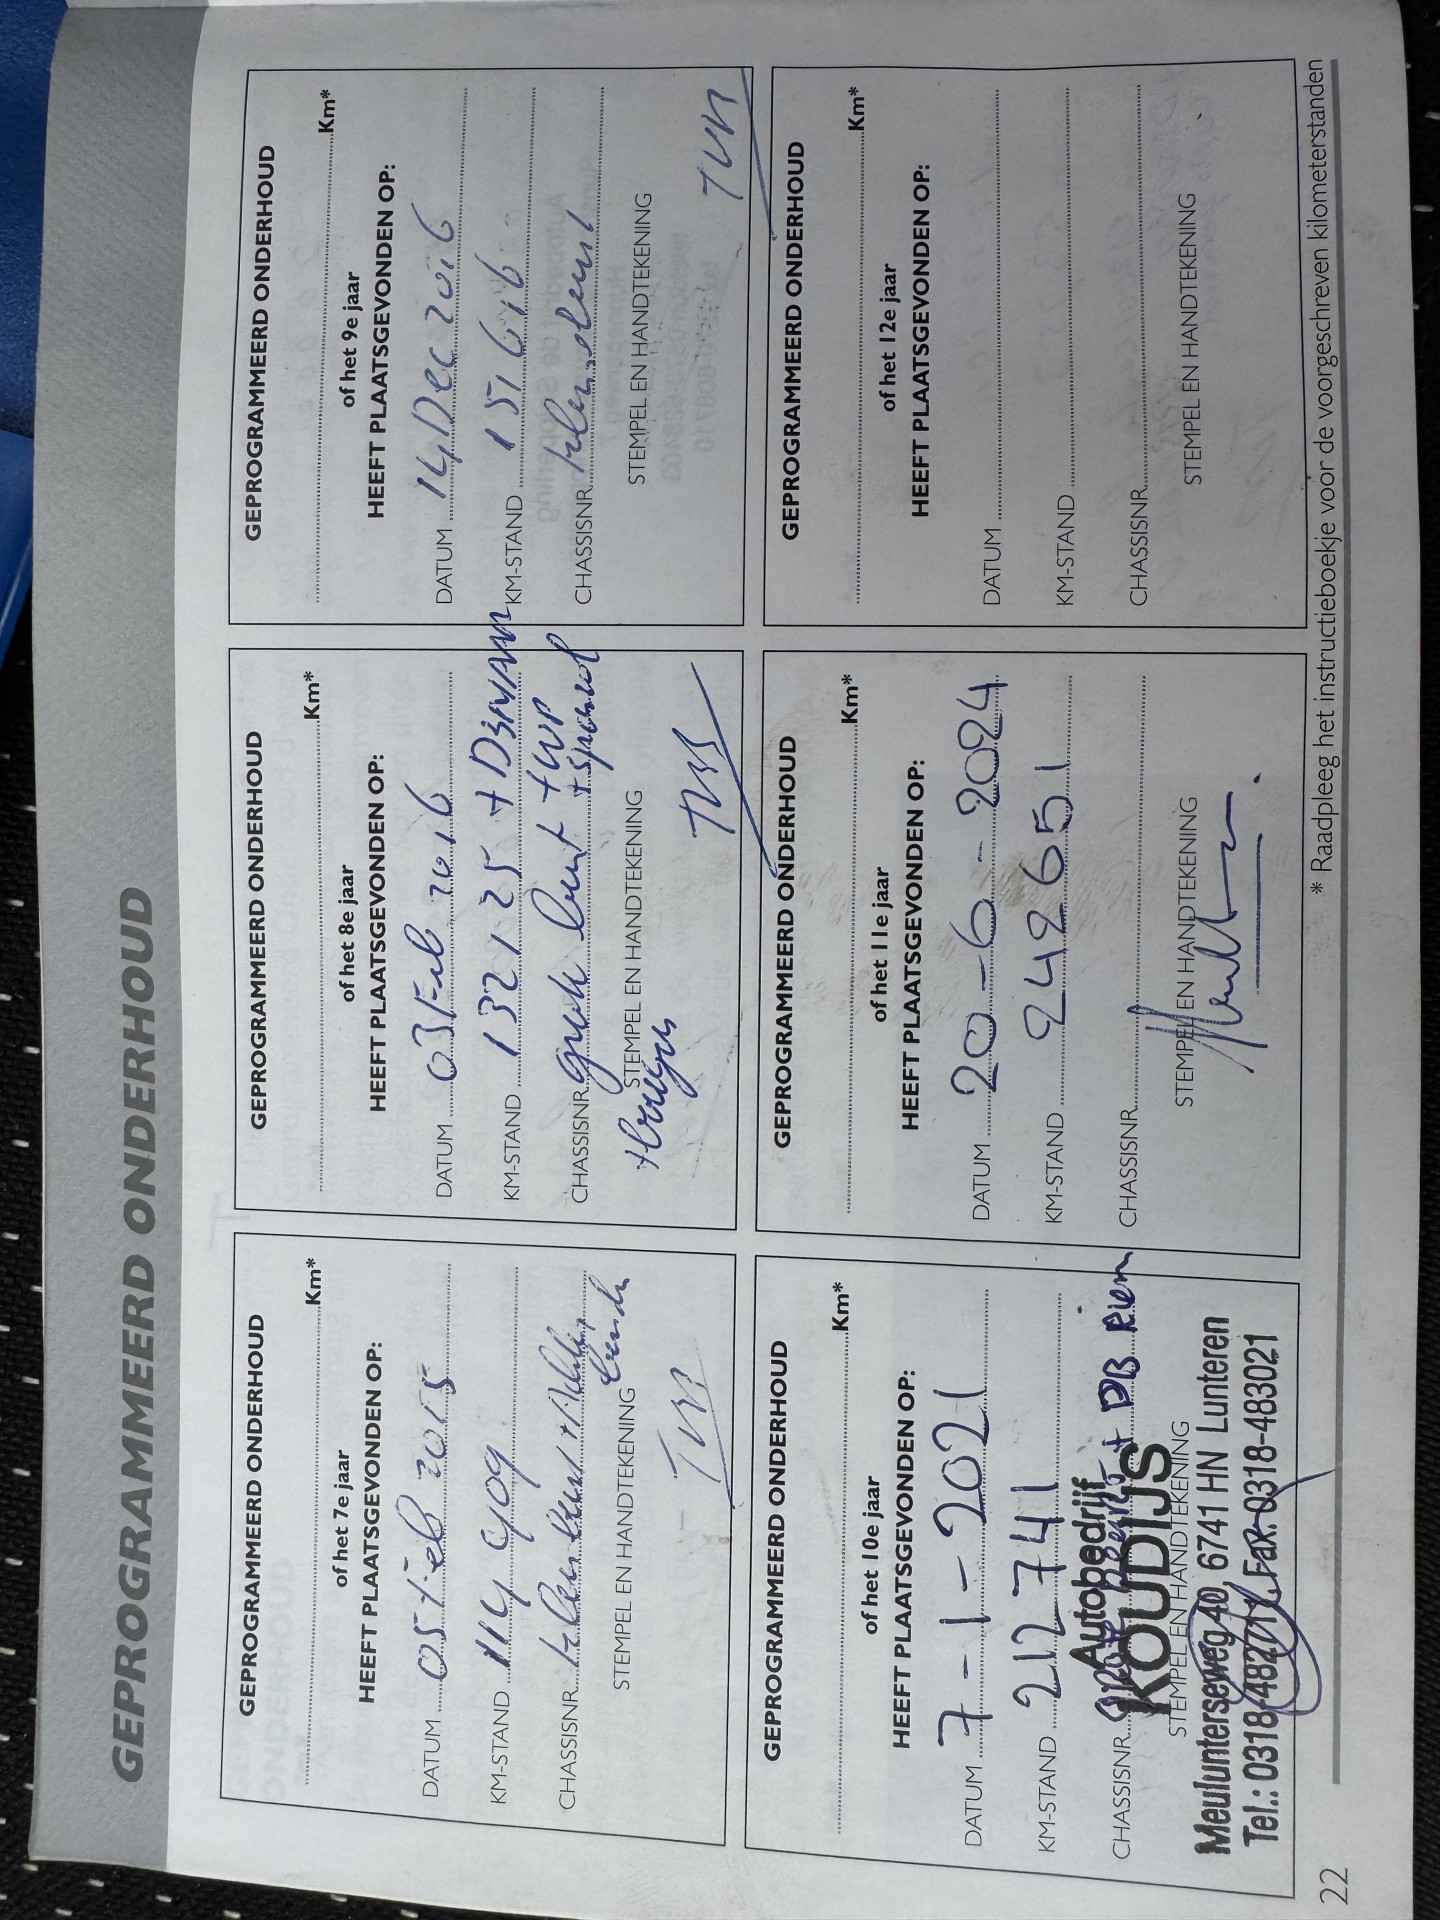 GEPROGRAMMEERD ONDERHOUD
GEPROGRAMMEERD ONDERHOUD
Km*
of het 7e jaar
HEEFT PLAATSGEVONDEN OP:
DATUM 05 Feb 2015
KM-STAND 114909
CHASSISNR. klein beurt +
STEMPEL EN HANDTEKENING
GEPROGRAMMEERD ONDERHOUD
Km*
of het 8e jaar
HEEFT PLAATSGEVONDEN OP:
DATUM 03 Feb 2016
KM-STAND 132125 +
CHASSISNR. grote beurt + WP
+
STEMPEL EN HANDTEKENING
GEPROGRAMMEERD ONDERHOUD
Km*
of het 9e jaar
HEEFT PLAATSGEVONDEN OP:
DATUM 14 Dec 2016
KM-STAND 151616
CHASSISNR. klein beurt
STEMPEL EN HANDTEKENING
GEPROGRAMMEERD ONDERHOUD
Km*
of het 10e jaar
HEEFT PLAATSGEVONDEN OP:
DATUM 7-1-2021
KM-STAND 212741
CHASSISNR. + DB Riem
Autobedrijf
KOUDIJS
STEMPEL EN HANDTEKENING
Meulunterseweg 40, 6741 HN Lunteren
Tel.: 0318-482711, Fax. 0318-483021
GEPROGRAMMEERD ONDERHOUD
Km*
of het 11e jaar
HEEFT PLAATSGEVONDEN OP:
DATUM 20-6-2024
KM-STAND 242651
CHASSISNR.
STEMPEL EN HANDTEKENING
GEPROGRAMMEERD ONDERHOUD
Km*
of het 12e jaar
HEEFT PLAATSGEVONDEN OP:
DATUM
KM-STAND
CHASSISNR.
STEMPEL EN HANDTEKENING
* Raadpleeg het instructieboekje voor de voorgeschreven kilometerstanden
22